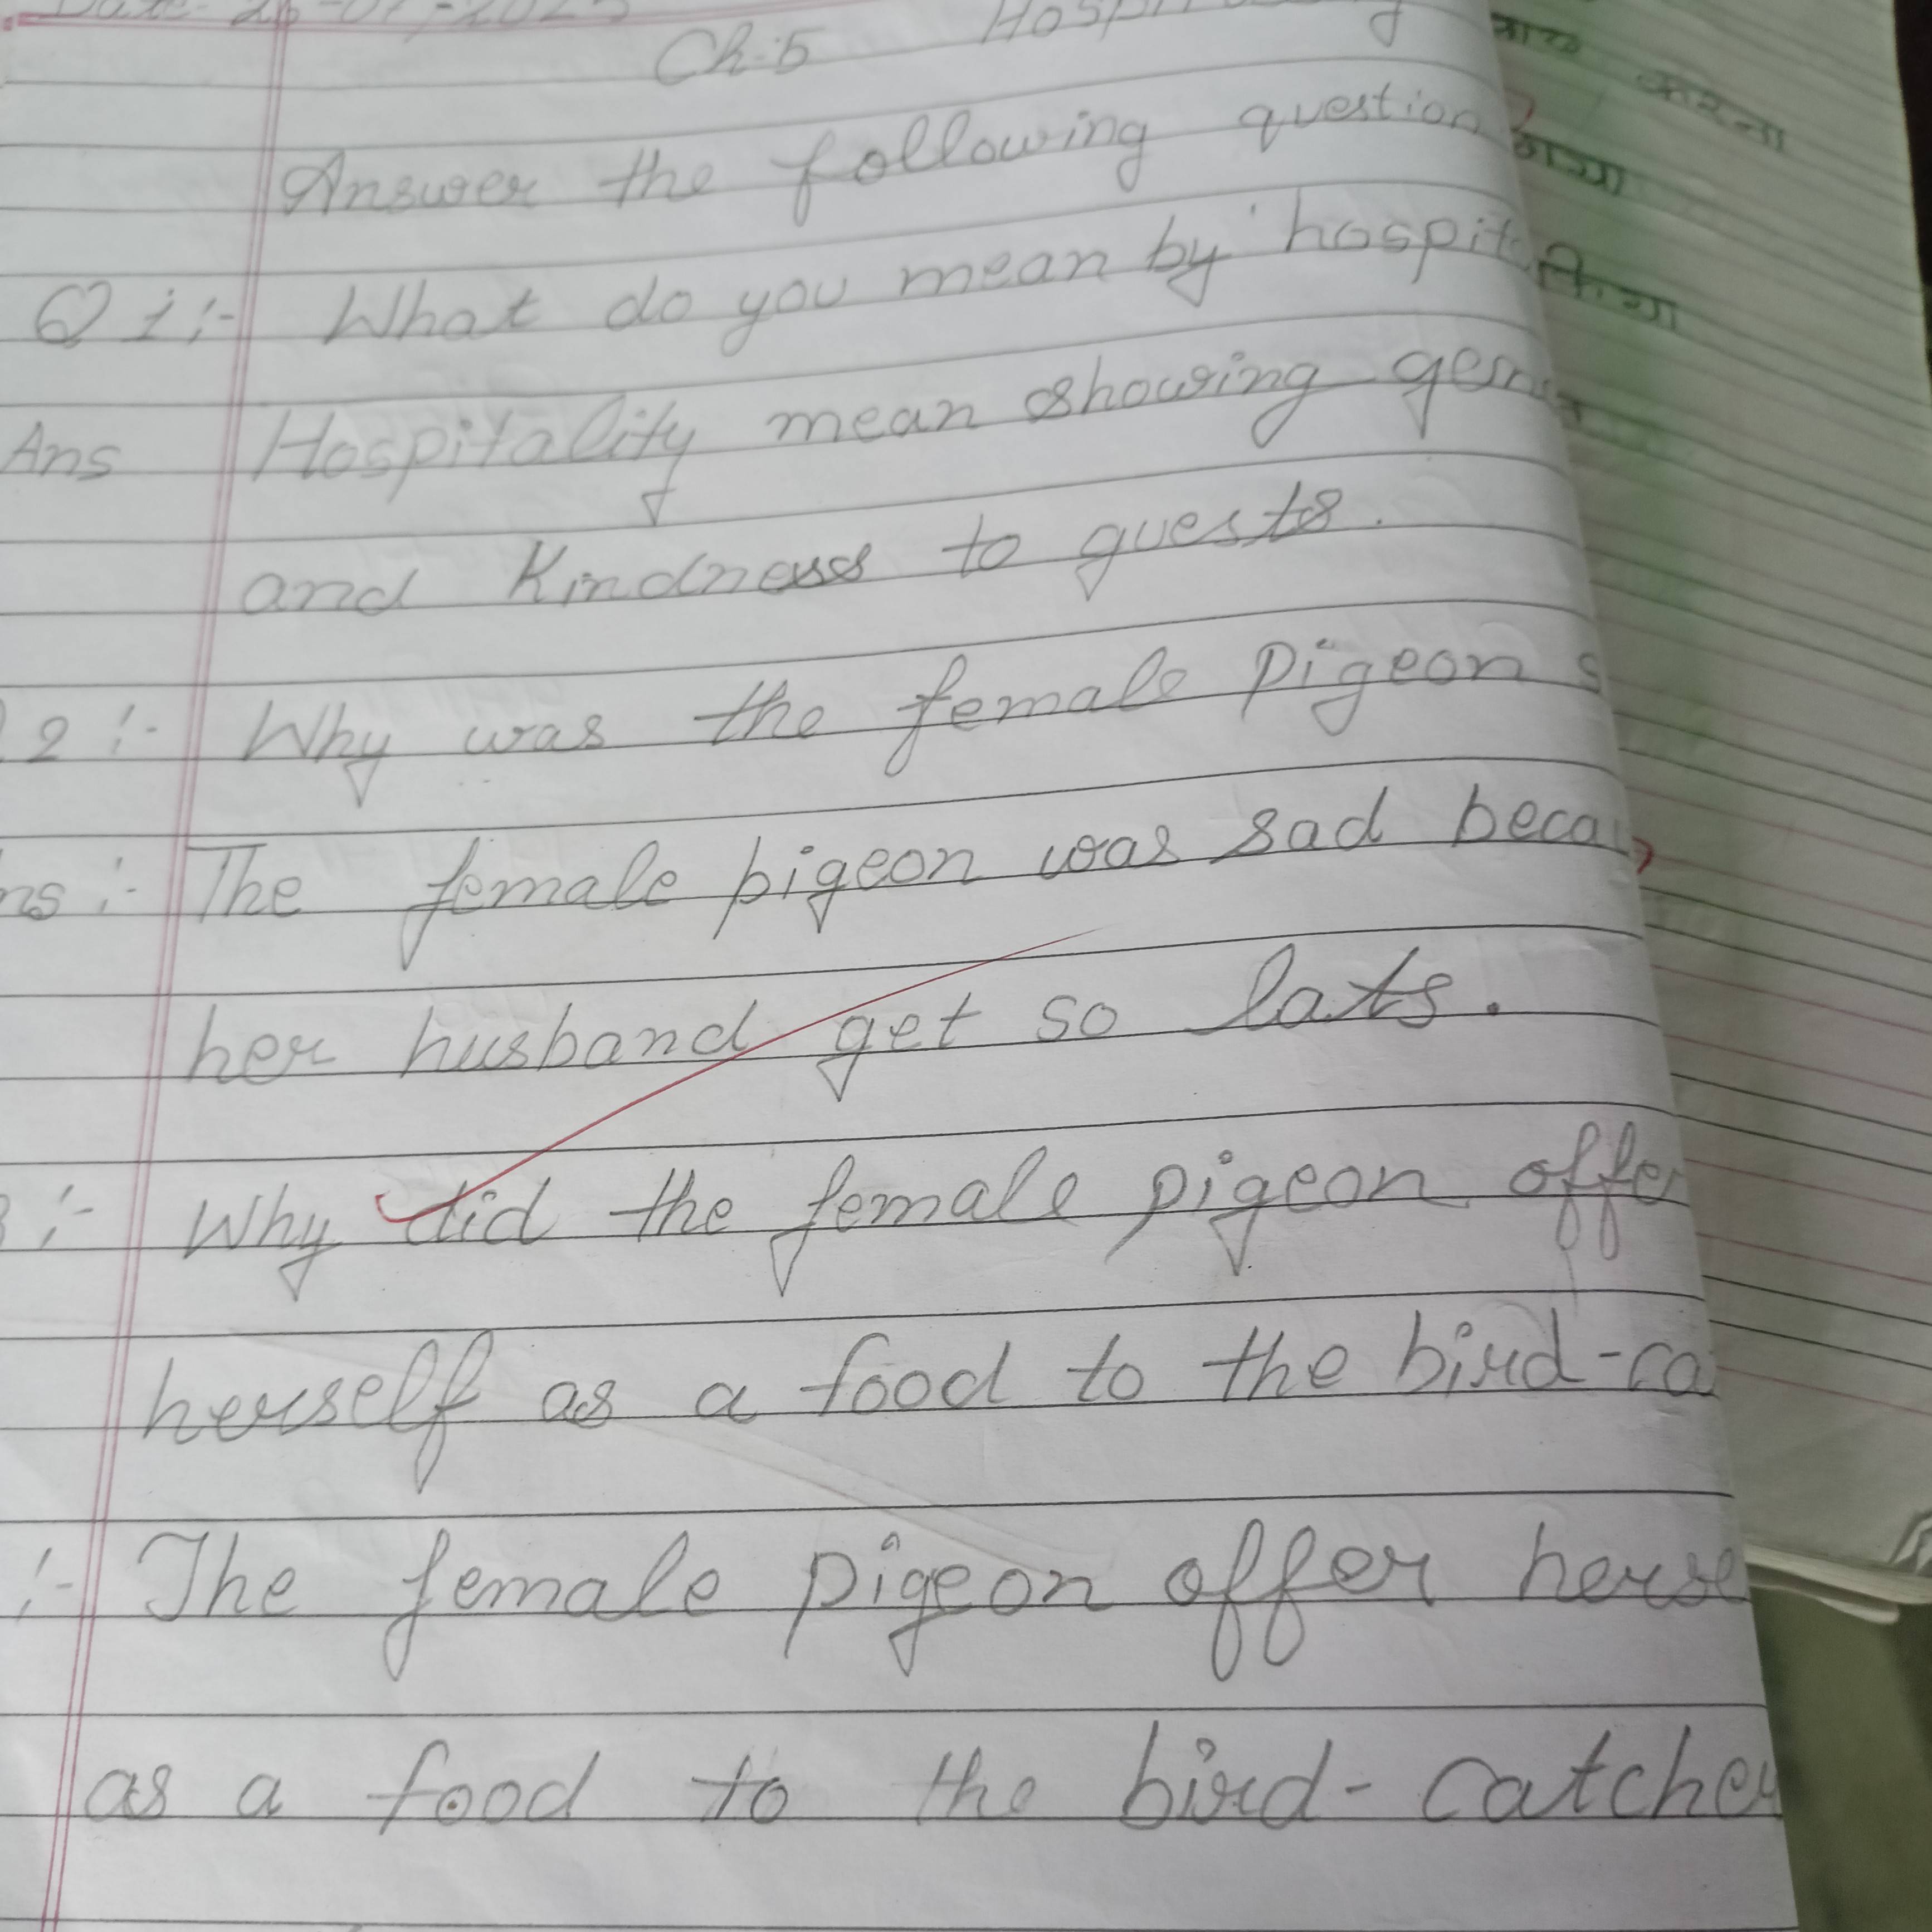 Ch:5
Answer the following question
Q 1:- What do you mean by 'hospit
Ans Hospitality mean showing gen
and Kindness to guests.
2:- Why was the female pigeon s
ns:- The female pigeon was sad beca
her husband get so late.
:- Why did the female pigeon offer
herself as a food to the bird-ca
:- The female pigeon offer herse
as a food to the bird-catcher
करना
गया
किया